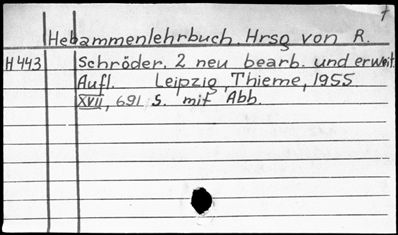 T
Hebammenlehrbuch. Hrsg von R.
H 443 Schröder. 2 neu bearb. und erweit.
Aufl. Leipzig, Thieme, 1955
XVII, 691 S. mit Abb.